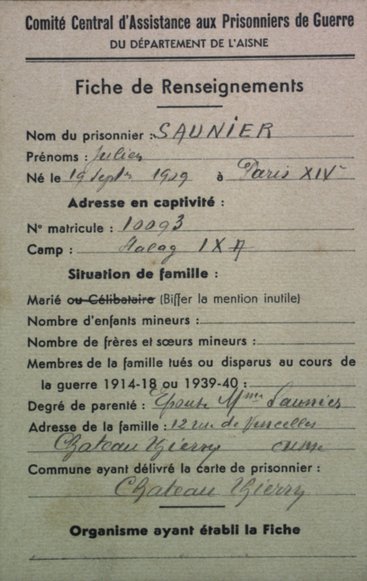 Comité Central d'Assistance aux Prisonniers de Guerre
DU DÉPARTEMENT DE L'AISNE
Fiche de Renseignements
Nom du prisonnier : SAUNIER
Prénoms : Julien
Né le 19 Septre 1909 à Paris XIVe
Adresse en captivité :
N° matricule : 10093
Camp : Stalag IX A
Situation de famille :
Marié ou Célibataire (Biffer la mention inutile)
Nombre d'enfants mineurs :
Nombre de frères et sœurs mineurs :
Membres de la famille tués ou disparus au cours de
la guerre 1914-18 ou 1939-40 :
Degré de parenté : Epouse Mme Saunier
Adresse de la famille : 12 rue de
Chateau Thierry
Commune ayant délivré la carte de prisonnier :
Chateau Thierry
Organisme ayant établi la Fiche